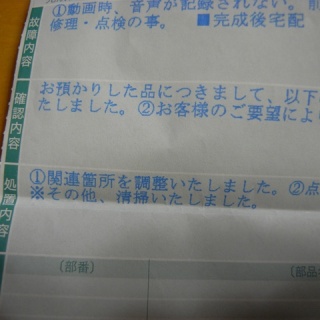 ①動画時、音声が記録されない。
修理・点検の事。 ■完成後宅配
故障内容
お預かりした品につきまして、以下
たしました。②お客様のご要望によ
確認内容
①関連箇所を調整いたしました。②点
※その他、清掃いたしました。
処置内容
(部番) (部品